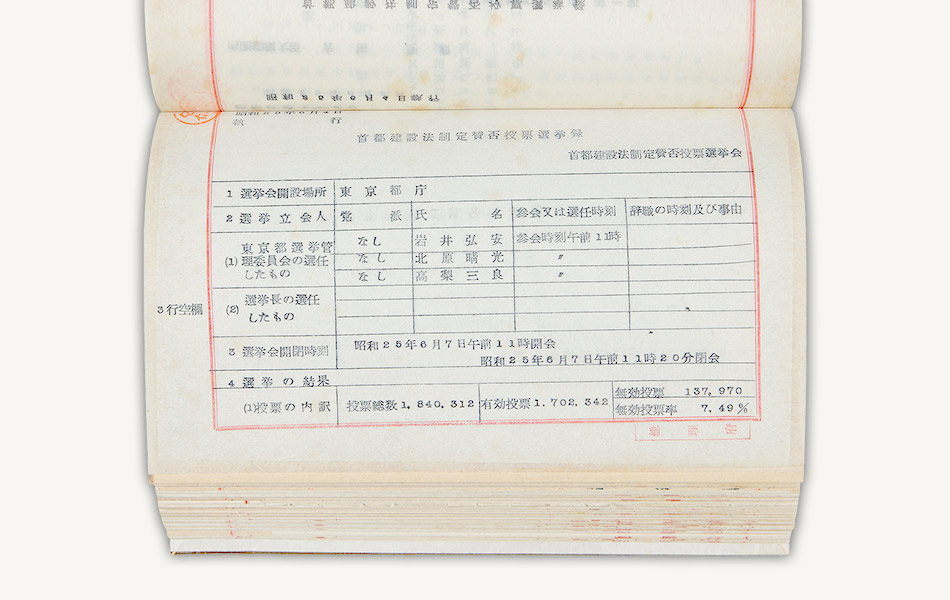 執行
首都建設法制定賛否投票選挙録
首都建設法制定賛否投票選挙会
1 選挙会開設場所 東京都庁
2 選挙立会人 党派 氏名 参会又は選任時刻 辞職の時刻及び事由
(1) 東京都選挙管理委員会の選任したもの
なし 岩井弘安 参会時刻午前11時
なし 北原晴光 〃
なし 高梨三良 〃
3行空欄
(2) 選挙長の選任したもの
3 選挙会開閉時刻 昭和25年6月7日午前11時開会
昭和25年6月7日午前11時20分閉会
4 選挙の結果
(1)投票の内訳 投票総数1,840,312 有効投票1.702,342 無効投票 137,970
無効投票率 7.49%
総理府